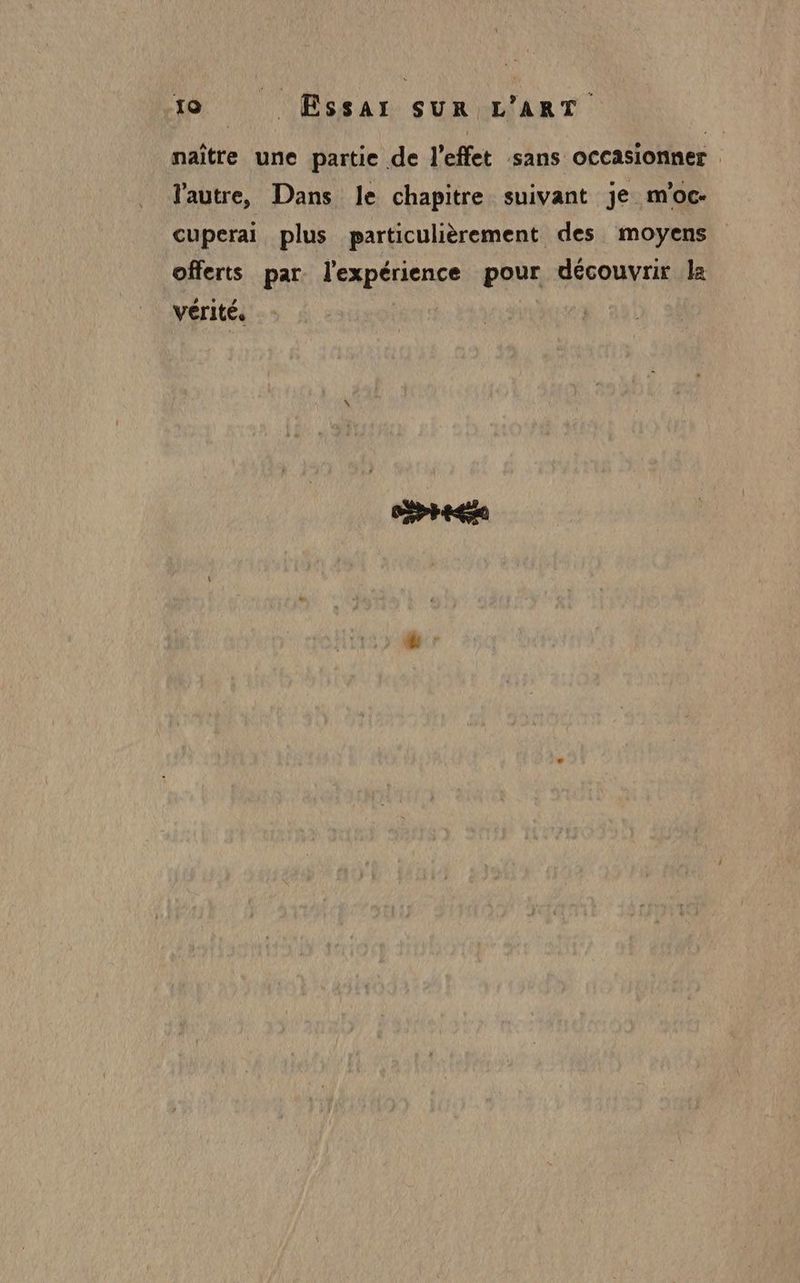 10 ESSAI SUR L'ART
naître une partie de l'effet sans occasionner
l'autre, Dans le chapitre suivant je m'oc-
cuperai plus particulièrement des moyens
offerts par l'expérience pour découvrir la
vérité.